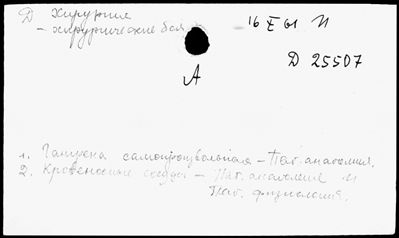 Д Хирургия
16 X 61 И
– хирургические бол
Д 25507
А
1. Гангрена самопроизвольная – Пат. анатомия.
2. Кровеносные сосуды – Пат. анатомия и
Пат. физиология.